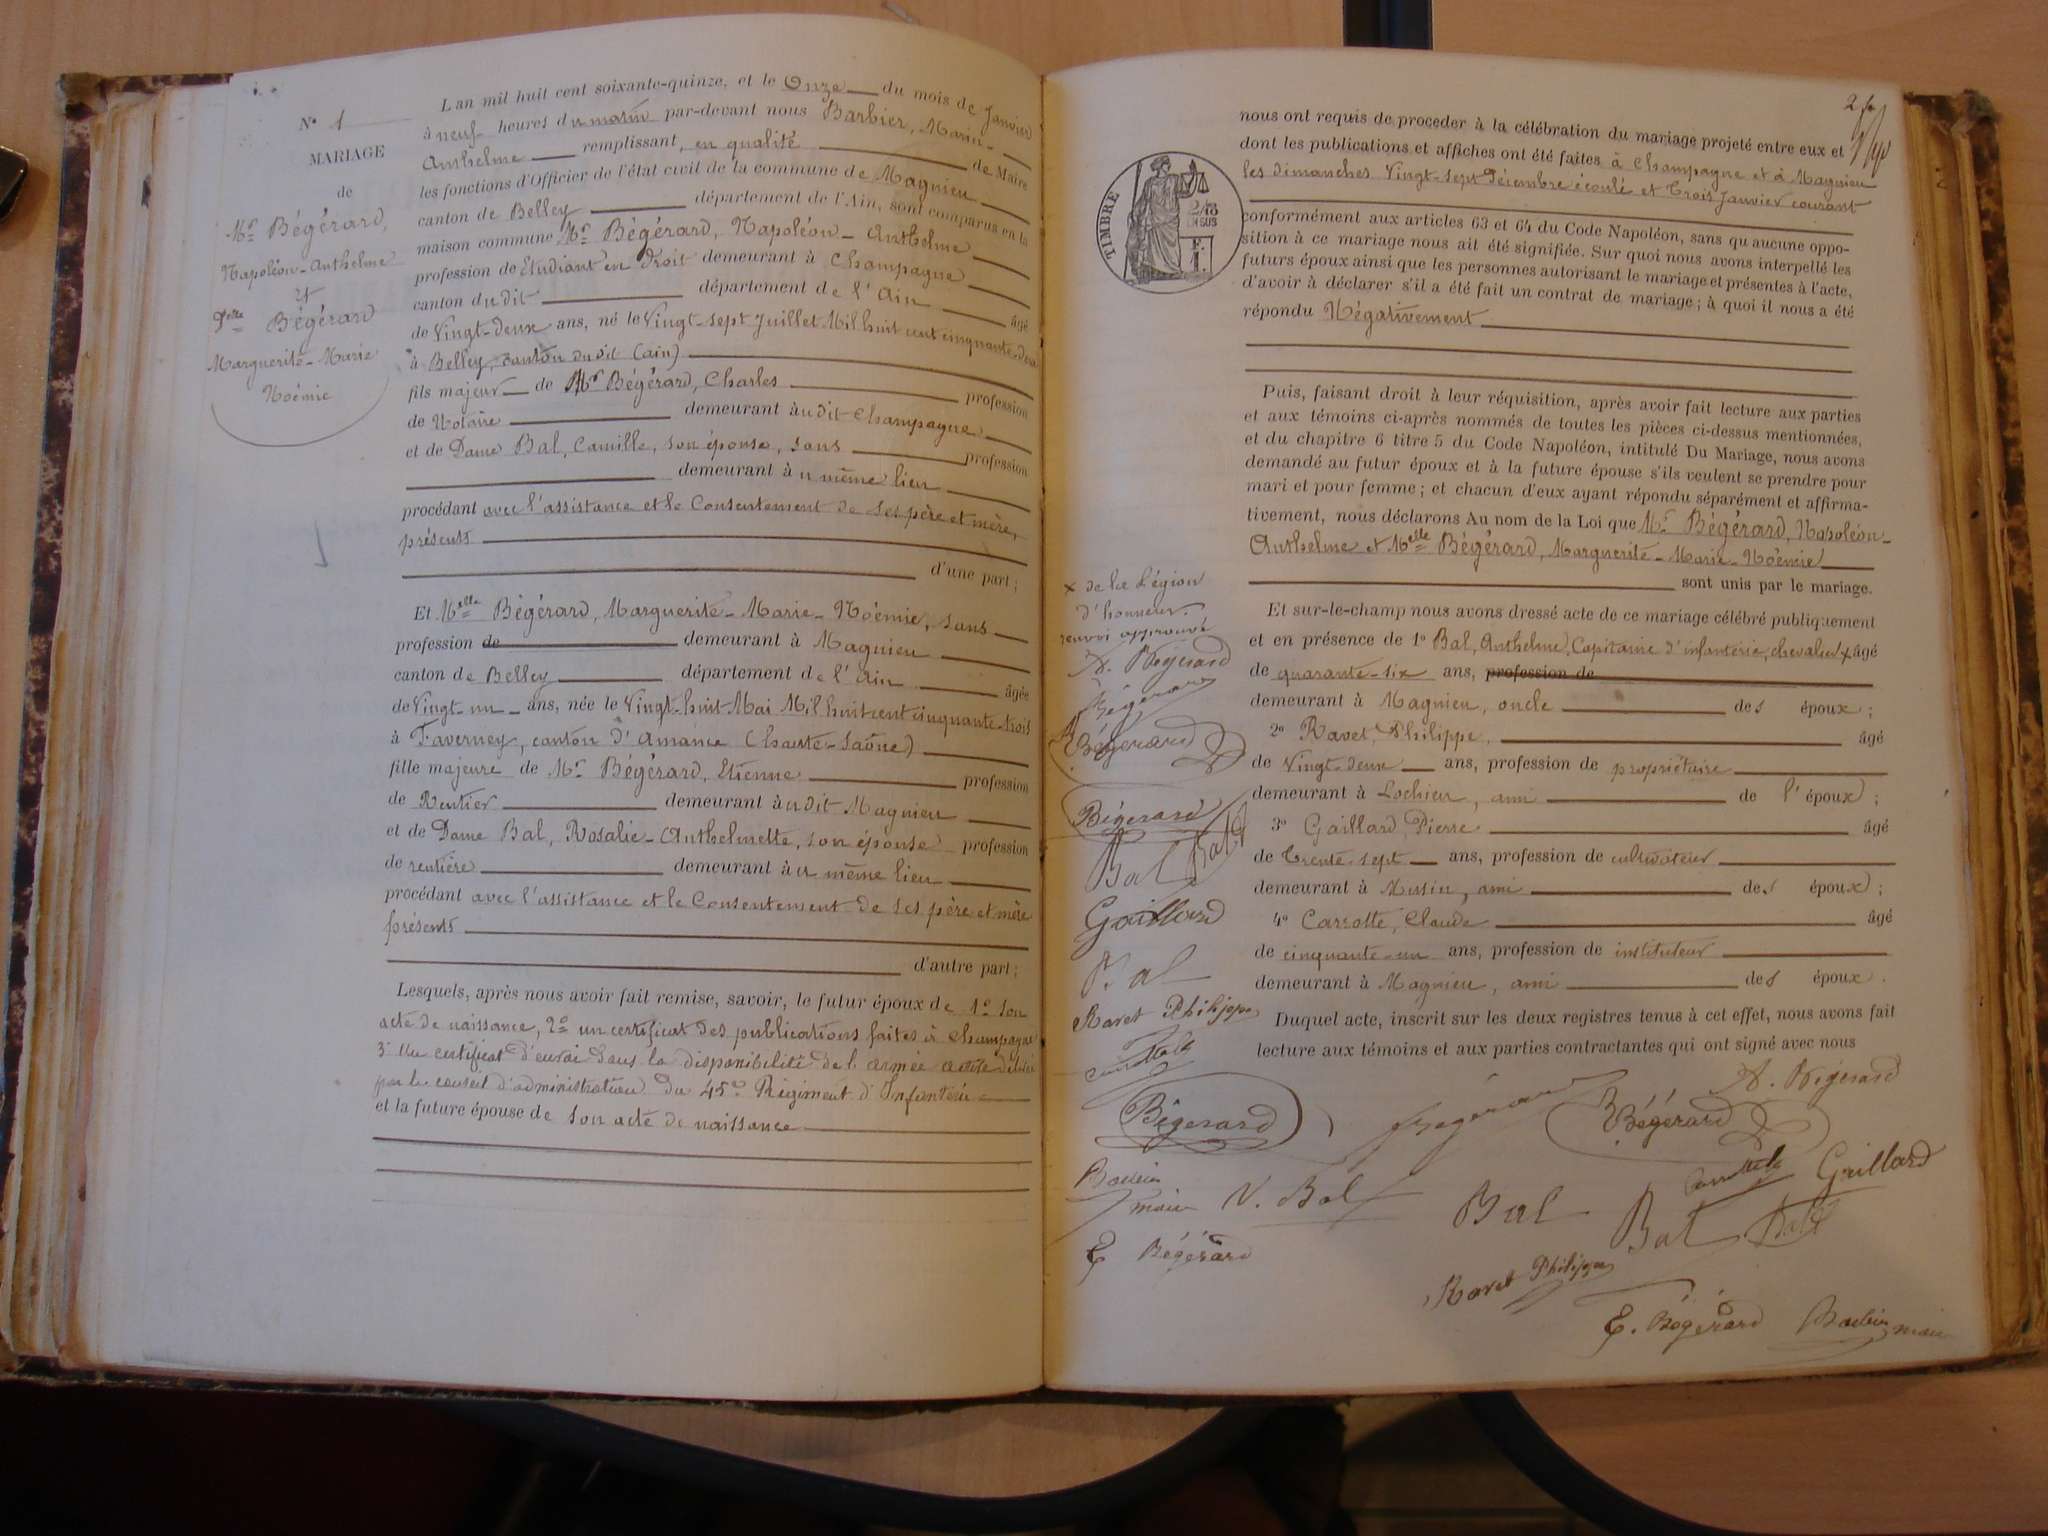 N° 1
MARIAGE
de
Mr Bégérard,
Napoléon-Anthelme
et
Delle Bégérard
Marguerite-Marie
Noémie
L'an mil huit cent soixante-quinze, et le Onze du mois de Janvier
à neuf heures du matin par-devant nous Barbier, Marin-
Anthelme remplissant, en qualité de Maire
les fonctions d'Officier de l'état civil de la commune de Magnieu
canton de Belley département de l'Ain, sont comparus en la
maison commune Mr Bégérard, Napoléon-Anthelme
profession de Etudiant en Droit demeurant à Champagne
canton dudit département de l'Ain âgé
de Vingt-deux ans, né le Vingt-sept Juillet Mil huit cent cinquante-deux
à Belley, canton dudit (Ain)
fils majeur de Mr Bégérard, Charles profession
de Notaire demeurant audit Champagne
et de Dame Bal, Camille, son épouse, sans profession
demeurant au même lieu
procédant avec l'assistance et le Consentement de ses père et mère,
présents
d'une part ;
Et Melle Bégérard, Marguerite-Marie-Noémie, sans
profession de demeurant à Magnieu
canton de Belley département de l'Ain âgée
de Vingt-un ans, née le Vingt-huit Mai Mil huit cent cinquante-trois
à Faverney, canton d'Amance (haute-Saône)
fille majeure de Mr Bégérard, Etienne profession
de Rentier demeurant audit Magnieu
et de Dame Bal, Rosalie-Anthelmette, son épouse profession
de rentière demeurant au même lieu
procédant avec l'assistance et le Consentement de ses père et mère
présents
d'autre part ;
Lesquels, après nous avoir fait remise, savoir, le futur époux de 1° son
acte de naissance, 2° un certificat des publications faites à Champagne
3° Un certificat d'envoi dans la disponibilité de l'armée active délivré
par le conseil d'administration du 45e Régiment d'Infanterie
et la future épouse de son acte de naissance
2
nous ont requis de procéder à la célébration du mariage projeté entre eux et
dont les publications et affiches ont été faites à Champagne et à Magnieu
les dimanches Vingt-sept Décembre écoulé et Trois Janvier courant
TIMBRE
2/10
EN SUS
F.
1.
conformément aux articles 63 et 64 du Code Napoléon, sans qu'aucune oppo-
sition à ce mariage nous ait été signifiée. Sur quoi nous avons interpellé les
futurs époux ainsi que les personnes autorisant le mariage et présentes à l'acte,
d'avoir à déclarer s'il a été fait un contrat de mariage ; à quoi il nous a été
répondu Négativement
Puis, faisant droit à leur réquisition, après avoir fait lecture aux parties
et aux témoins ci-après nommés de toutes les pièces ci-dessus mentionnées,
et du chapitre 6 titre 5 du Code Napoléon, intitulé Du Mariage, nous avons
demandé au futur époux et à la future épouse s'ils veulent se prendre pour
mari et pour femme ; et chacun d'eux ayant répondu séparément et affirma-
tivement, nous déclarons Au nom de la Loi que Mr Bégérard, Napoléon-
Anthelme et Melle Bégérard, Marguerite-Marie-Noémie
sont unis par le mariage.
Et sur-le-champ nous avons dressé acte de ce mariage célébré publiquement
et en présence de 1° Bal, Anthelme, Capitaine d'infanterie, chevalier x âgé
de quarante-six ans, profession de
demeurant à Magnieu, oncle des époux ;
2° Ravet, Philippe, âgé
de Vingt-deux ans, profession de propriétaire
demeurant à Lochieu, ami de l'époux ;
3° Gaillard, Pierre âgé
de Trente-sept ans, profession de cultivateur
demeurant à Musin, ami des époux ;
4° Carrotte, Claude âgé
de cinquante-un ans, profession de instituteur
demeurant à Magnieu, ami des époux.
Duquel acte, inscrit sur les deux registres tenus à cet effet, nous avons fait
lecture aux témoins et aux parties contractantes qui ont signé avec nous
x de la Légion
d'honneur.
renvoi approuvé
N. Bégérard
Bégérard
Bégérard
Bégérard
Bal
Gaillard
V. Bal
Ravet Philippe
Bégérard
Barbier
maire
E Bégérard
N. Bégérard
Bégérard
Bégérard
Gaillard
V. Bal
Bal
Bal
Ravet Philippe
E. Bégérard
Barbier maire